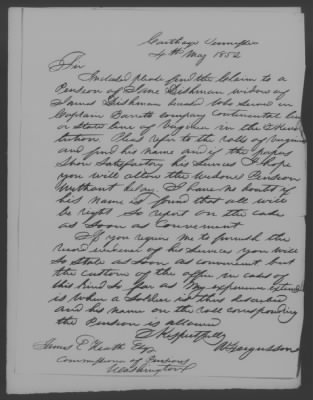 Carthage Tennessee
4th May 1852
Sir
Inclosed please find the Claim to a
Pension of Jane Dishman widow of
James Dishman deceased who served in
Captain Barretts company Continental line
or State line of Virginia in the Revo
lution. Please refer to the rolls of Virginia
and find his name and if the papers
Show Satisfactory his Services I hope
you will allow the widows Pension
Without delay. I have no doubt if
his name is found that all will
be right so report on the case
as soon as Convenient
If you require me to furnish the
record evidence of his Services you will
so state as soon as convenient but
the custom of the office in cases of
this kind so far as my experience extends
is when a Soldier is thus described
and his name on the roll corresponding
the Pension is allowed
Respectfully
W Fergusson
James E Heath Esq
Commissioner of Pensions
Washington